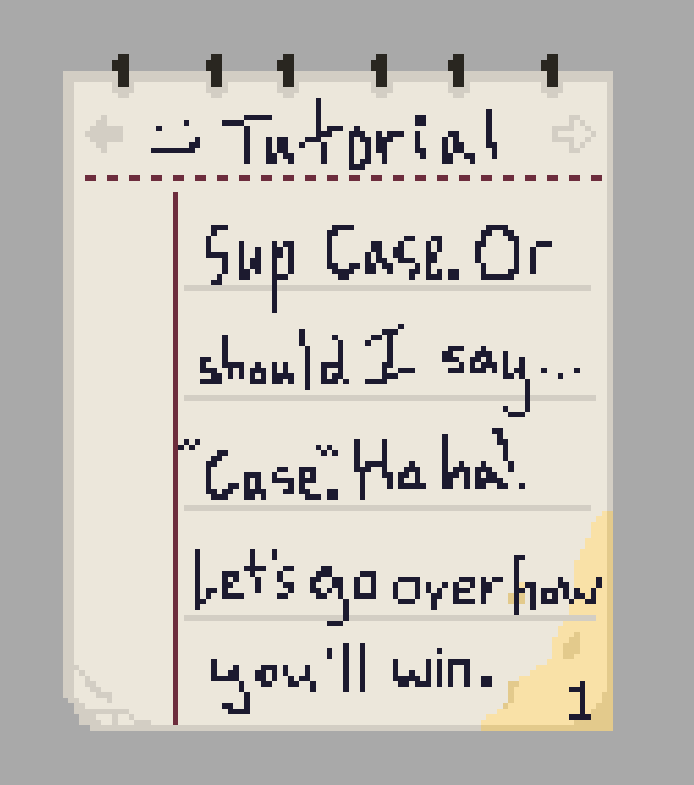 :) Tutorial
Sup Case. Or
should I say...
"Case". Ha ha!
Let's go over how
you'll win.
1